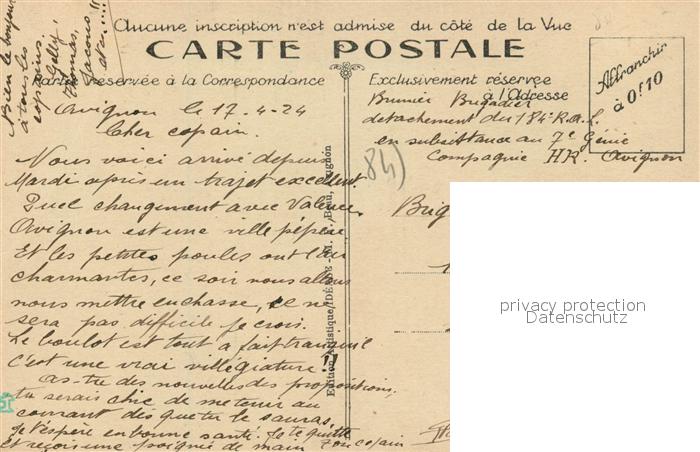 Aucune inscription n'est admise du côté de la Vue
CARTE POSTALE
Partie réservée à la Correspondance
Exclusivement réservée
à l'Adresse
Affranchir
à 0f10
Bien le bonjour
à tous les
copains.
Thomas,
Avignon le 17-4-24
Cher copain.
Nous voici arrivé depuis
Mardi après un trajet excellent.
Quel changement avec Valence,
Avignon est une ville pépère
Et les petites poules ont l'air
charmantes, ce soir nous allons
nous mettre en chasse, ce ne
sera pas difficile je crois.
Le boulot est tout a fait tranquil
C'est une vrai villégiature!!
as-tu des nouvelles des propositions,
tu serais chic de metenir au
courant dès que tu le sauras,
Je t'espère en bonne santé. Je te quitte
Et reçois une poignée de main Ton copain
Brunier Brigadier
detachement du 184e R.a.L.
en subsistance au 7e Génie
Compagnie HR. Avignon
84)
Brig
Edition Artistique "IDÉALE"
privacy protection
Datenschutz